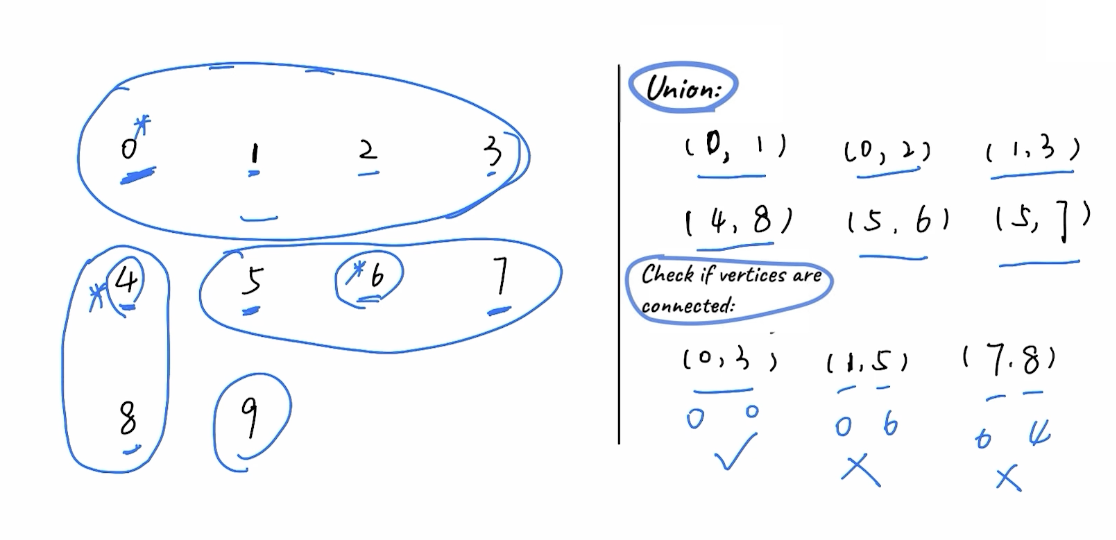 0* 1 2 3
*4 5 *6 7
8 9
Union:
(0, 1) (0, 2) (1, 3)
(4, 8) (5, 6) (5, 7)
Check if vertices are
connected:
(0, 3) (1, 5) (7. 8)
0 0 0 6 6 4
✓ X X